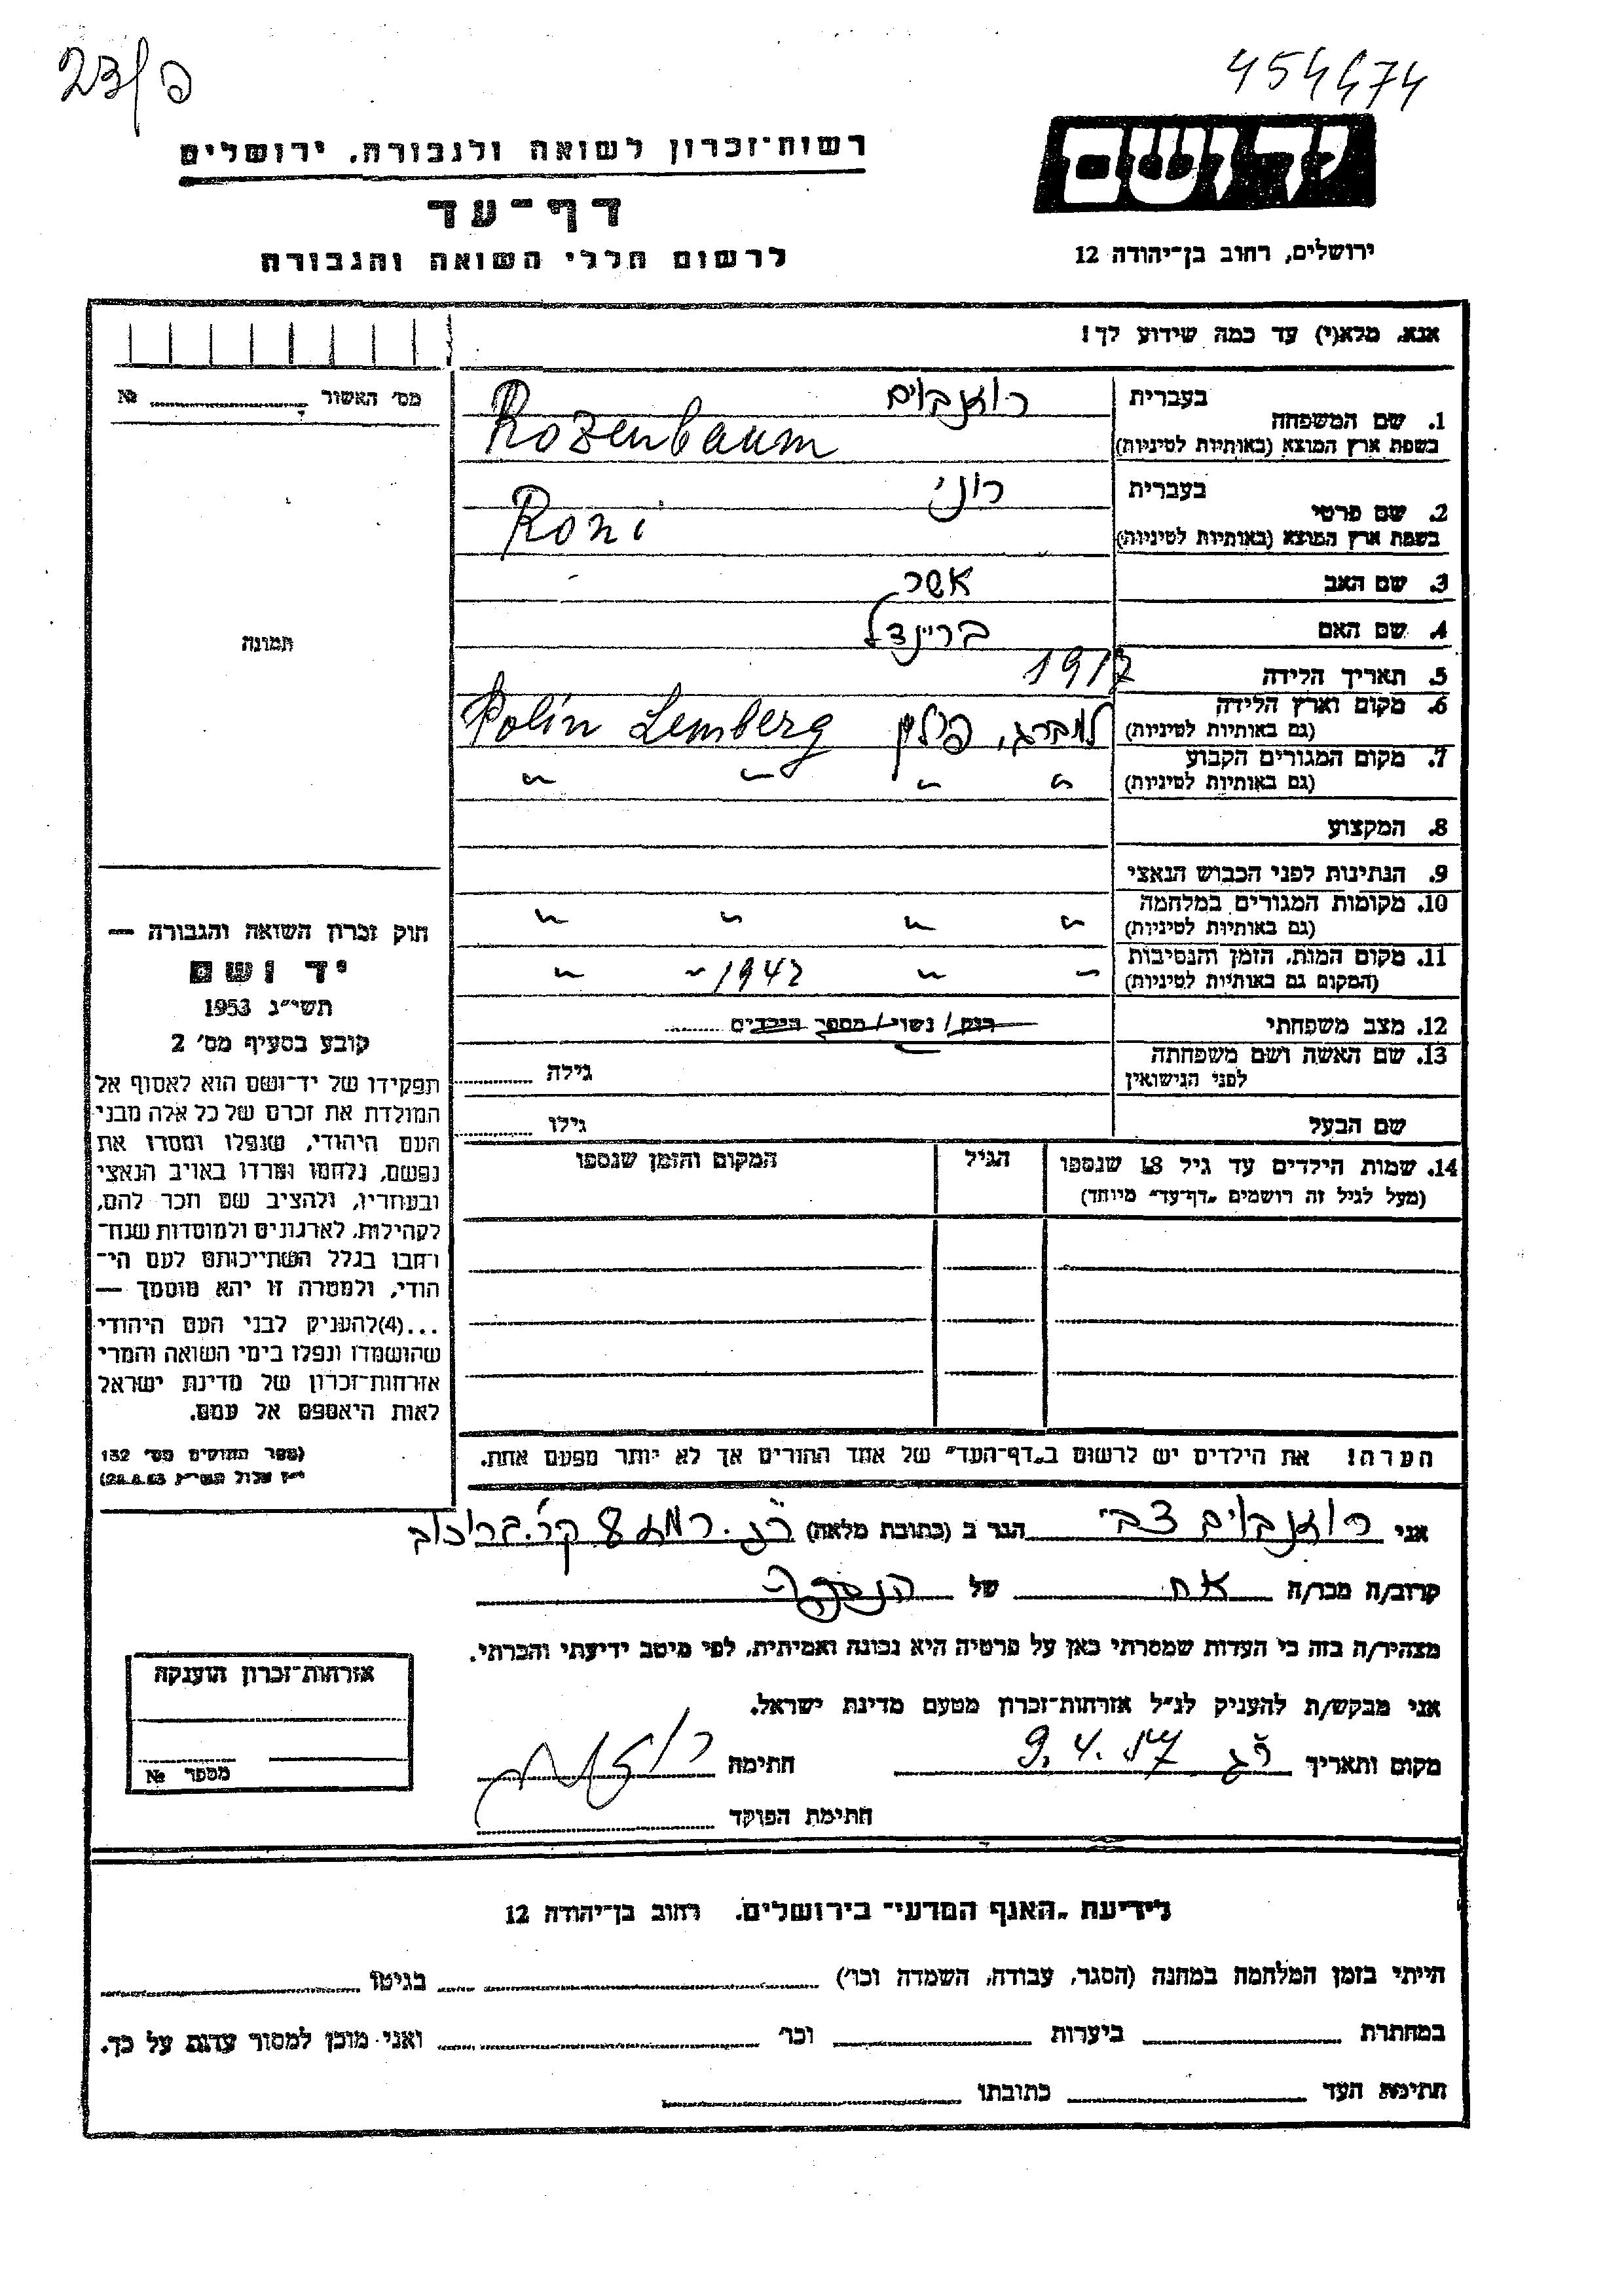 23/פ
454474
רשות־זכרון לשואה ולגבורה, ירושלים
יד ושם
דף־עד
לרשום חללי השואה והגבורה
ירושלים, רחוב בן־יהודה 12
אנא, מלא(י) עד כמה שידוע לך!
מס' האשור № ........
1. שם המשפחה
בעברית
רוזנבוים
בשפת ארץ המוצא (באותיות לטיניות)
Rozenbaum
2. שם פרטי
בעברית
רוני
בשפת ארץ המוצא (באותיות לטיניות)
Roni
3. שם האב
אשר
4. שם האם
בריינדל
5. תאריך הלידה
1917
6. מקום וארץ הלידה
(גם באותיות לטיניות)
למברג, פולין Polin Lemberg
7. מקום המגורים הקבוע
(גם באותיות לטיניות)
" " " "
8. המקצוע
9. הנתינות לפני הכבוש הנאצי
10. מקומות המגורים במלחמה
(גם באותיות לטיניות)
" " " "
11. מקום המות, הזמן והנסיבות
(המקום גם באותיות לטיניות)
" " 1942 " "
12. מצב משפחתי
רוק/ נשוי/ מספר הילדים ........
13. שם האשה ושם משפחתה
לפני הנישואין
גילה ........
שם הבעל
גילו ........
14. שמות הילדים עד גיל 18 שנספו
(מעל לגיל זה רושמים „דף־עד” מיוחד)
הגיל
המקום והזמן שנספו
הערה! את הילדים יש לרשום ב„דף־העד” של אחד ההורים אך לא יותר מפעם אחת.
תמונה
חוק זכרון השואה והגבורה —
יד ושם
תשי״ג 1953
קובע בסעיף מס' 2
תפקידו של יד־ושם הוא לאסוף אל
המולדת את זכרם של כל אלה מבני
העם היהודי, שנפלו ומסרו את
נפשם, נלחמו ומרדו באויב הנאצי
ובעוזריו, ולהציב שם וזכר להם,
לקהילות, לארגונים ולמוסדות שנח־
רבו בגלל השתייכותם לעם הי־
הודי, ולמטרה זו יהא מוסמך —
...(4)להעניק לבני העם היהודי
שהושמדו ונפלו בימי השואה והמרי
אזרחות־זכרון של מדינת ישראל
לאות היאספם אל עמם.
(ספר החוקים מס' 132
י״ז אלול תשי״ג 28.8.53)
אני רוזנבוים צבי הגר ב (כתובת מלאה) ר״ג. רמת עמ קר'. בורוכוב
קרוב/ה מכר/ה אח של הנספה
מצהיר/ה בזה כי העדות שמסרתי כאן על פרטיה היא נכונה ואמיתית, לפי מיטב ידיעתי והכרתי.
אני מבקש/ת להעניק לנ״ל אזרחות־זכרון מטעם מדינת ישראל.
מקום ותאריך ר״ג 9.4.57 חתימה
חתימת הפוקד
אזרחות־זכרון הוענקה
מספר №
לידיעת „האגף המדעי” בירושלים, רחוב בן־יהודה 12
הייתי בזמן המלחמה במחנה (הסגר, עבודה, השמדה וכו') בגיטו
במחתרת ביערות וכו' ואני מוכן למסור עדות על כך.
חתימת העד כתובתו